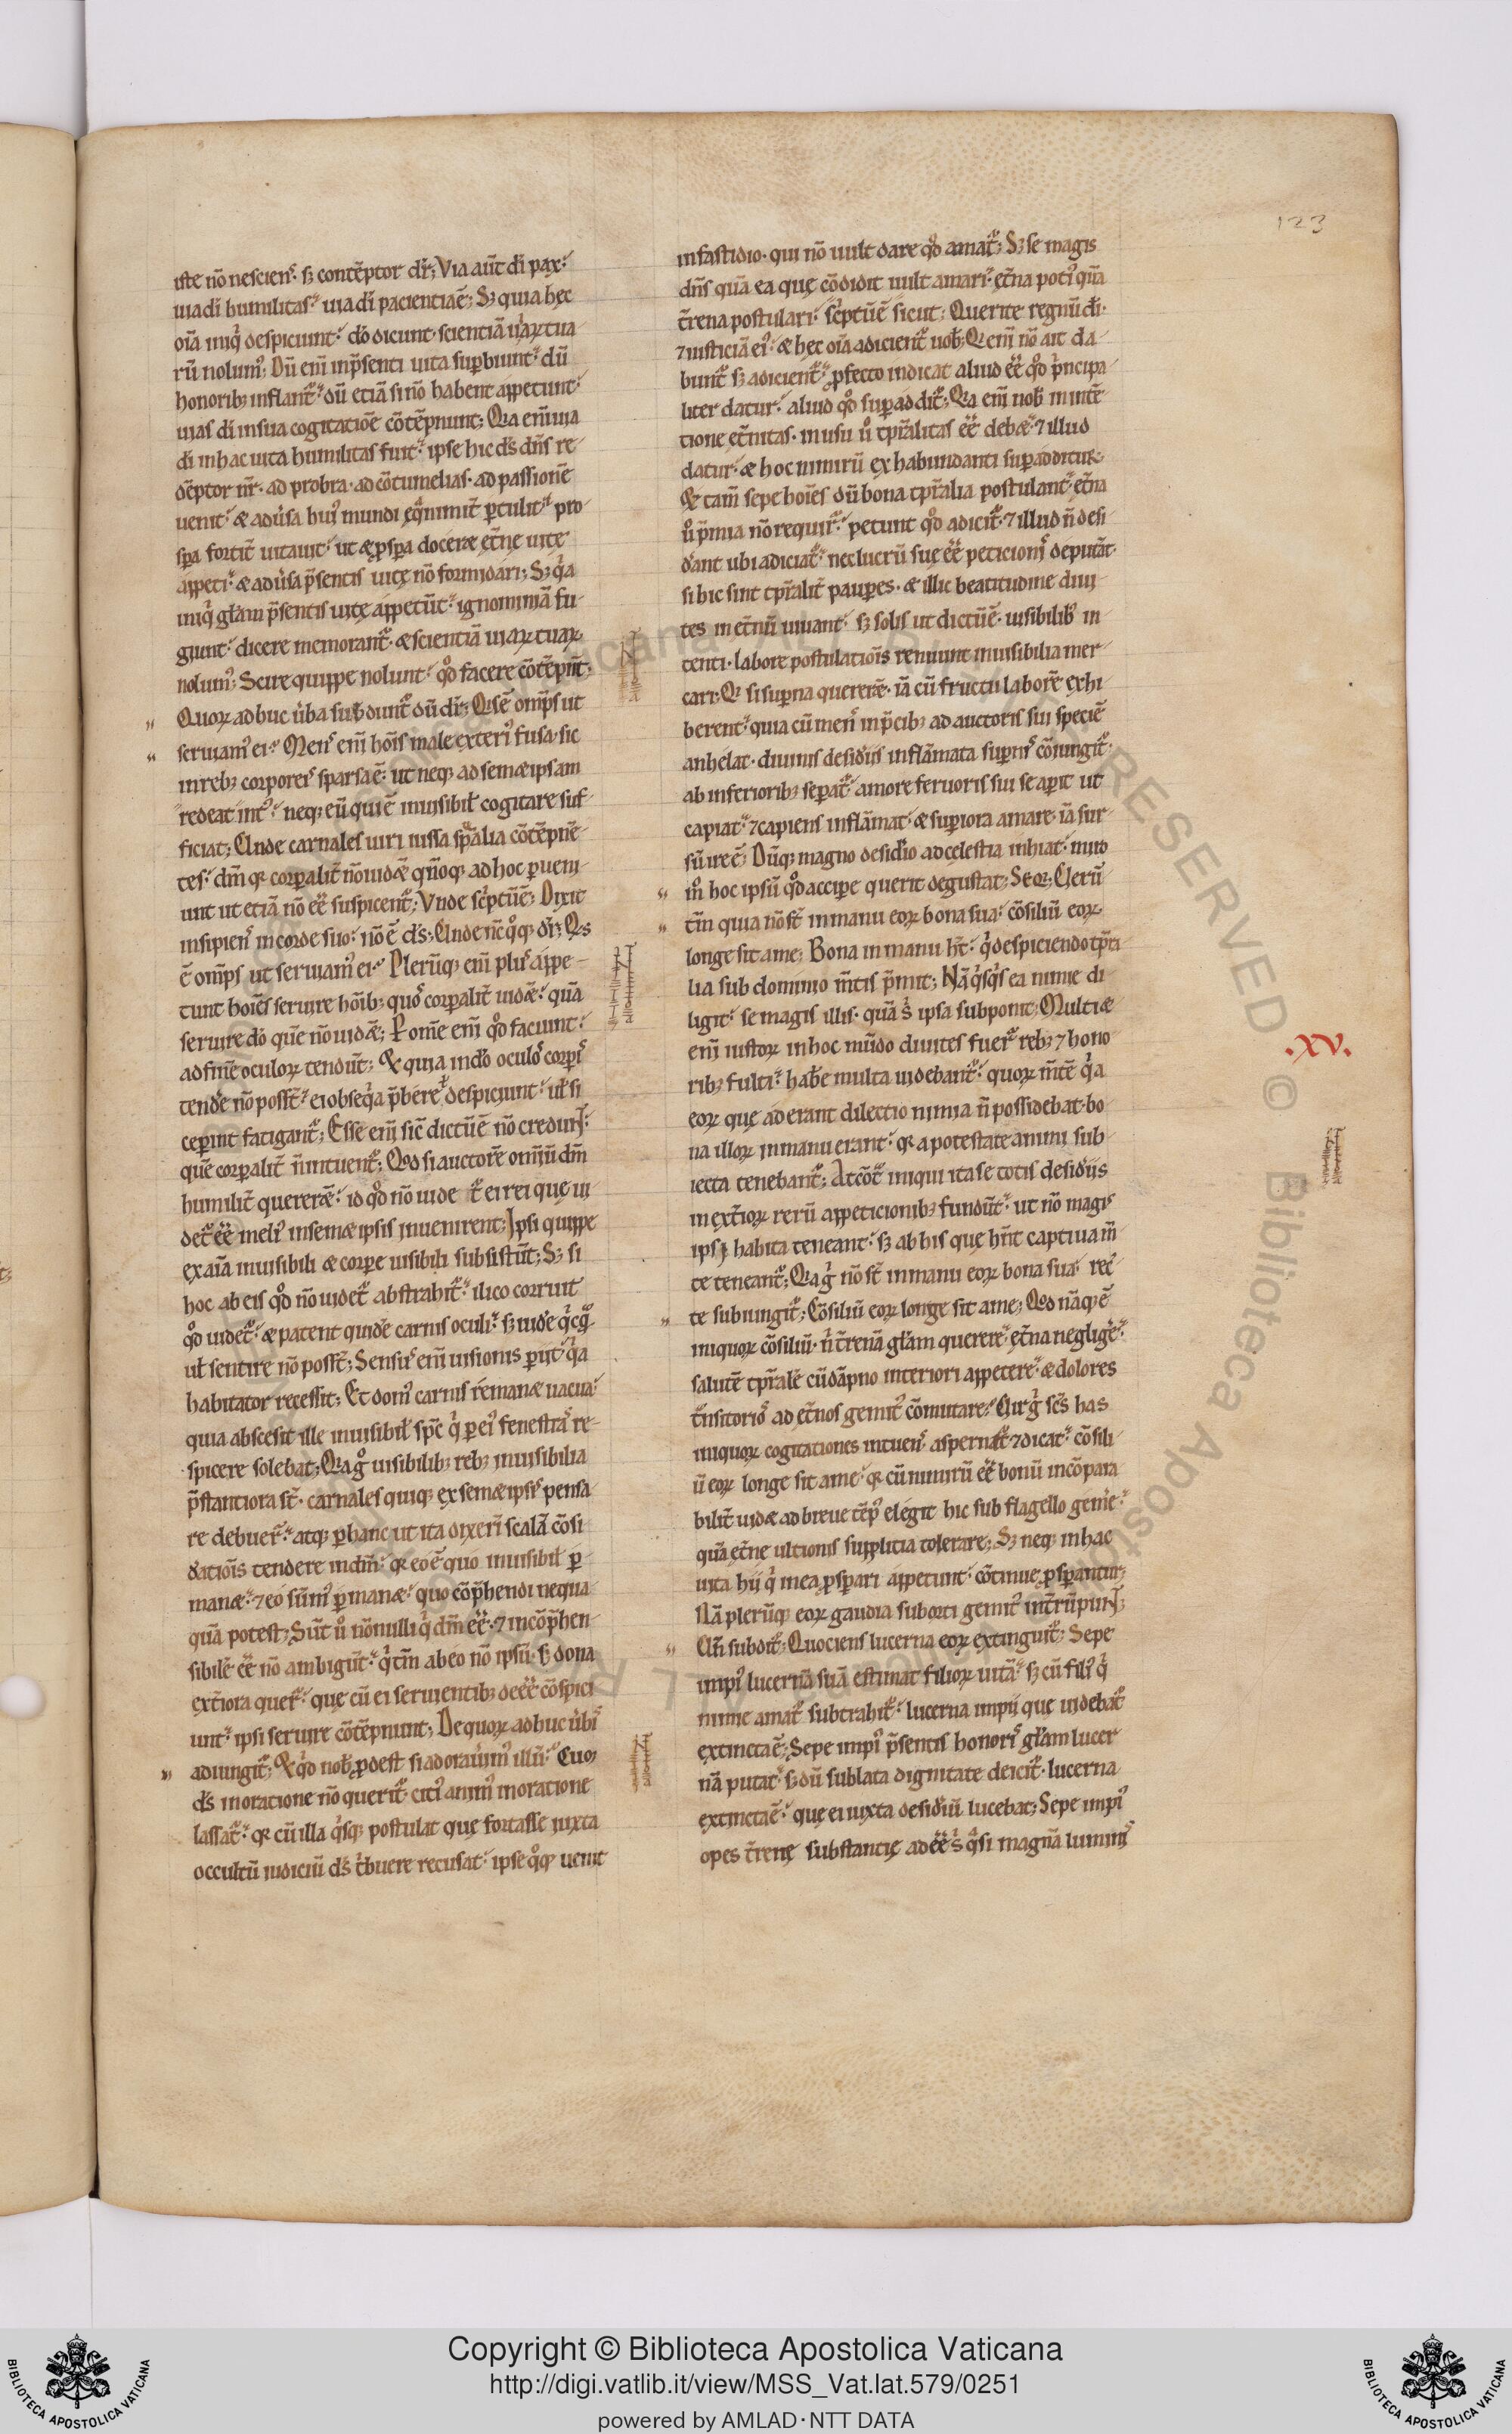 123
iste nō nesciens. sȝ contēptor dr̄; Via aut̄ dī pax.
uia dī humilitas. uia dī pacientia ē; Sȝ quia hęc
oīa iniqi despiciunt. dō dicunt. scientiā uiaꝝ tua
rū nolumꝰ; Dū enī in p̄senti uita supbiunt. dū
honoribȝ inflant᷑. dū etiā si nō habent appetunt.
uias dī in sua cogitatiōe cōtēpnunt; Q̄a enī uia
dī in hac uita humilitas fuit. ipse hic ds̄ dn̄s re
dēptor nr̄. ad probra. ad cōtumelias. ad passionē
uenit. & aduersa huiꝰ mundi ęqnimit̄ ptulit. pro
spa fortit̄ uitauit. ut & pspa docer& et̄nę uitę
appeti. & aduersa p̄sentis uitę nō formidari; Sȝ qa
iniqi gl̄am p̄sentis uitę appetūt. ignominiā fu
giunt. dicere memorant᷑. & scientiā uiaꝝ tuaꝝ
nolumꝰ; Scire quippe nolunt. qd facere cōtēpnūt;
Quoꝝ adhuc uerba subdunt᷑ dū dr̄; Qis ē omp̄s ut
seruiamꝰ ei. Mens enī hōis male exteriꝰ fusa. sic
in rebȝ corporeis sparsa ē. ut neqȝ ad sem&ipsam
redeat intꝰ. neqȝ eū qui ē inuisibil̄ cogitare suf
ficiat; Unde carnales uiri iussa spalia cōtēpnē
tes. dm̄ qȝ corpalit̄ nō uid& qn̄oqȝ ad hoc pueni
unt ut etiā nō ēē suspicent᷑; Vnde sc̄ptū ē; Dixit
insipiens in corde suo. nō ē ds̄; Unde nc̄ qoqȝ dr̄; Qis
ē omp̄s ut seruiamꝰ ei. Plerūqȝ enī plus appe
tunt hoīes seruire hoībȝ quos corpalit̄ uid&. quā
seruire dō quē nō uid&; P ome enī qd faciunt.
ad finē oculoꝝ tendūt; & quia in dō oculos corpis
tendere nō posst̄. ei obseqia p̄bere despiciunt. ul̄ si
ceperint fatigant᷑; Esse enī sic̄ dictū ē nō credunt.
quē corpalit̄ n̄ intuent᷑; Qd si auctorē omniū dm̄
humilit̄ querer&. id qd nō uide t᷑ ei rei quę ui
det᷑ ēē meliꝰ in sem&ipsis inuenirent; Ipsi quippe
ex aīa inuisibili & corpe uisibili subsistūt; Sȝ si
hoc ab eis qd nō uidet᷑ abstrahit᷑. ilico corruit
qd uidet᷑. & patent quidē carnis oculi. sȝ uidere qicqm
ul̄ sentire nō posst̄; Sensus enī uisionis periit. qa
habitator recessit; Et domꝰ carnis reman& uacua.
quia abscessit ille inuisibil̄ spc̄ qi p eiꝰ fenestras re
spicere solebat; Q̄a g uisibilibȝ rebȝ inuisibilia
p̄stantiora st̄. carnales quiqȝ ex sem&ipsis pensa
re debuer̄. atqȝ p hanc ut ita dixerī scalā cōsi
derationis tendere in dm̄. qȝ eo ē quo inuisibil̄ p
man&. & eo sūmꝰ pman&. quo cōp̄hendi nequa
quā potest; Sūt uo nōnulli qi dm̄ ēē. & incōp̄hen
sibilē ēē nō ambigūt. qi tm̄ ab eo nō ipsū. sȝ dona
ext̄iora quer̄. quę cū ei seruientibȝ deēē cōspici
unt. ipsi seruire cōtēpnunt; De quoꝝ adhuc uerbis
adiungit᷑; & qid nob̄ pdest si adorauimꝰ illū. Cuꝫ
ds̄ in oratione nō querit᷑. citiꝰ animꝰ in oratione
lassat᷑. qȝ cū illa qisqȝ postulat quę fortasse iuxta
occultū iudiciū ds̄ tribuere recusat. ipse qoqȝ uenit
in fastidio. qui nō uult dare qd amat᷑; Sȝ se magis
dn̄s quā ea quę cōdidit uult amari. ęt̄na potiꝰ quā
t̄rena postulari. sc̄ptū ē sicut; Querite regnū dī.
& iusticiā eiꝰ. & hęc oīa adicient᷑ uob̄; Q̄ enī nō ait da
bunt᷑ sȝ adicient᷑. pfecto indicat aliud ēē qd p̄ncipa
liter datur. aliud qd supaddit᷑; Q̄a enī nob̄ in intē
tione et̄nitas. in usu uo tpr̄alitas ēē deb&. & illud
datur. & hoc nimirū ex habundanti supadditur.
& tam̄ sepe hoīes dū bona tpr̄alia postulant. et̄na
uo p̄mia nō requir̄. petunt qd adicit᷑. & illud n̄ desi
derant ubi adiciat᷑. nec lucrū suę ēē peticionis deputāt.
si hic sint tpr̄alit̄ paupes. & illic beatitudine diui
tes in et̄nū uiuant. sȝ solis ut dictū ē. uisibilibꝰ in
tenti. labore postulationis renuunt inuisibilia mer
cari; Q̄ si supna quererē. iā cū fructu laborē exhi
berent. quia cū mens in p̄cibȝ ad auctoris sui speciē
anhelat. diuinis desideriis inflāmata supnis cōiungit᷑.
ab inferioribȝ separat᷑. amore feruoris sui se aperit ut
capiat. & capiens inflāmat. & supiora amare iā sur
sū ire ē; Dūqȝ magno desiderio ad celestia inhiat. miro
mo hoc ipsū qd accipe querit degustat; Seqr; Uerū
tm̄ quia nō st̄ in manu eoꝝ bona sua. cōsiliū eoꝝ
longe sit a me; Bona in manu hēt. qi despiciendo tp̄ra
lia sub dominio mentis p̄mit; Nā qisqis ea nimie di
ligit. se magis illis. quā si ipsa subponit; Multi &
enī iustoꝝ in hoc mūdo diuites fuer̄ rebȝ & hono
ribȝ fulti. habere multa uidebant᷑. quoꝝ mentē qa
eoꝝ quę aderant dilectio nimia n̄ possidebat. bo
na illoꝝ in manu erant. qȝ a potestate animi sub
iecta tenebant᷑; At cōt iniqui ita se totis desideriis
in ext̄ioꝝ rerū appeticionibȝ fundūt. ut nō magis
ipsi habita teneant. sȝ ab his quę hn̄t captiua m̄
te teneant᷑; Q̄a g nō st̄ in manu eoꝝ bona sua. rec
te subiungit᷑; Cōsiliū eoꝝ longe sit a me; Qd nāqȝ ē
iniquoꝝ cōsiliū. ni t̄renā gl̄am querere. et̄na negligere.
salutē tpr̄alē cū dāpno interiori appetere. & dolores
t̄nsitorios ad et̄nos gemitꝰ cōmutare. Uir g scs̄ has
iniquoꝝ cogitationes intuens aspernat᷑. & dicat. cōsili
ū eoꝝ longe sit a me. qȝ cū nimirū ēē bonū incōpara
bilit̄ uid& ad breue tēpꝰ elegit hic sub flagello gemere.
quā et̄nę ultionis supplicia tolerare; Sȝ neqȝ in hac
uita hij qi in ea pspari appetunt. cōtinue psperantur;
Nā plerūqȝ eoꝝ gaudia suborti gemitꝰ int̄rūpunt;
Un̄ subdit᷑; Quociens lucerna eoꝝ extinguit᷑; Sepe
impiꝰ lucernā suā estimat filioꝝ uitā. sȝ cū filiꝰ qi
nimie amat᷑ subtrahit᷑. lucerna impii quę uidebat᷑
extincta ē; Sepe impiꝰ p̄sentis honoris gl̄am lucer
nā putat. sȝ dū sublata dignitate deicit᷑. lucerna
extincta ē. quę ei iuxta desideriū lucebat; Sepe impiꝰ
opes t̄renę substantię adēē si qsi magnā luminis
.XV.
Copyright © Biblioteca Apostolica Vaticana
http://digi.vatlib.it/view/MSS_Vat.lat.579/0251
powered by AMLAD·NTT DATA